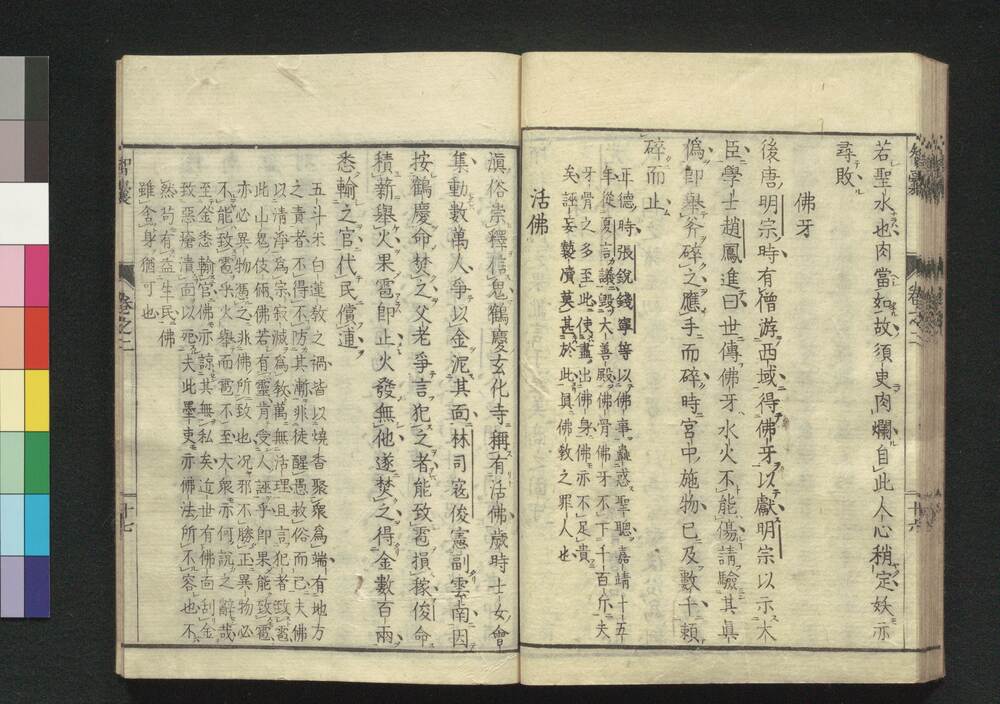 若聖水也肉當如故須臾肉爛自此人心稍定妖亦
尋敗
佛牙
後唐明宗時有僧游西域得佛牙以獻明宗以示大
臣學士趙鳳進曰世傳佛牙水火不能傷請驗其眞
僞即舉斧碎之應手而碎時宮中施物已及數千賴
碎而止
正德時張銳錢寧等以佛事蠱惑聖聰嘉靖十五
年從夏言議毀大善殿佛骨佛牙不下千百斤夫
牙骨之多至此使盡出佛身佛亦不足貴
矣誣妄褻瀆莫甚於此眞佛敎之罪人也
活佛
滇俗崇釋信鬼鶴慶玄化寺稱有活佛歲時士女會
集動數萬人爭以金泥其面林司寇俊憲副雲南因
按鶴慶命焚之父老爭言犯之者能致雹損稼俊命
積薪舉火果雹即止火發無他遂焚之得金數百兩
悉輸之官代民償逋
五斗米白蓮敎之禍皆以燒香聚衆爲端有地方
之責者不得不防其漸非徒醒愚救俗而已夫佛
以清淨爲宗寂滅爲敎萬無活理且言犯者致雹
此山鬼伎倆佛若有靈肯受人誣乎即果能致雹
亦必異物憑之非佛所致也況邪不勝正異物必
不能致雹乎火舉而雹不至大衆亦何說之辭哉
至金悉輸官佛亦諒其無私矣近世有佛面刮金
致惡瘡潰面以死夫此墨吏亦佛法所不容也不
然苟有益生民佛
雖舍身猶可也
智囊
卷之二
十六
智囊
卷之二
十七